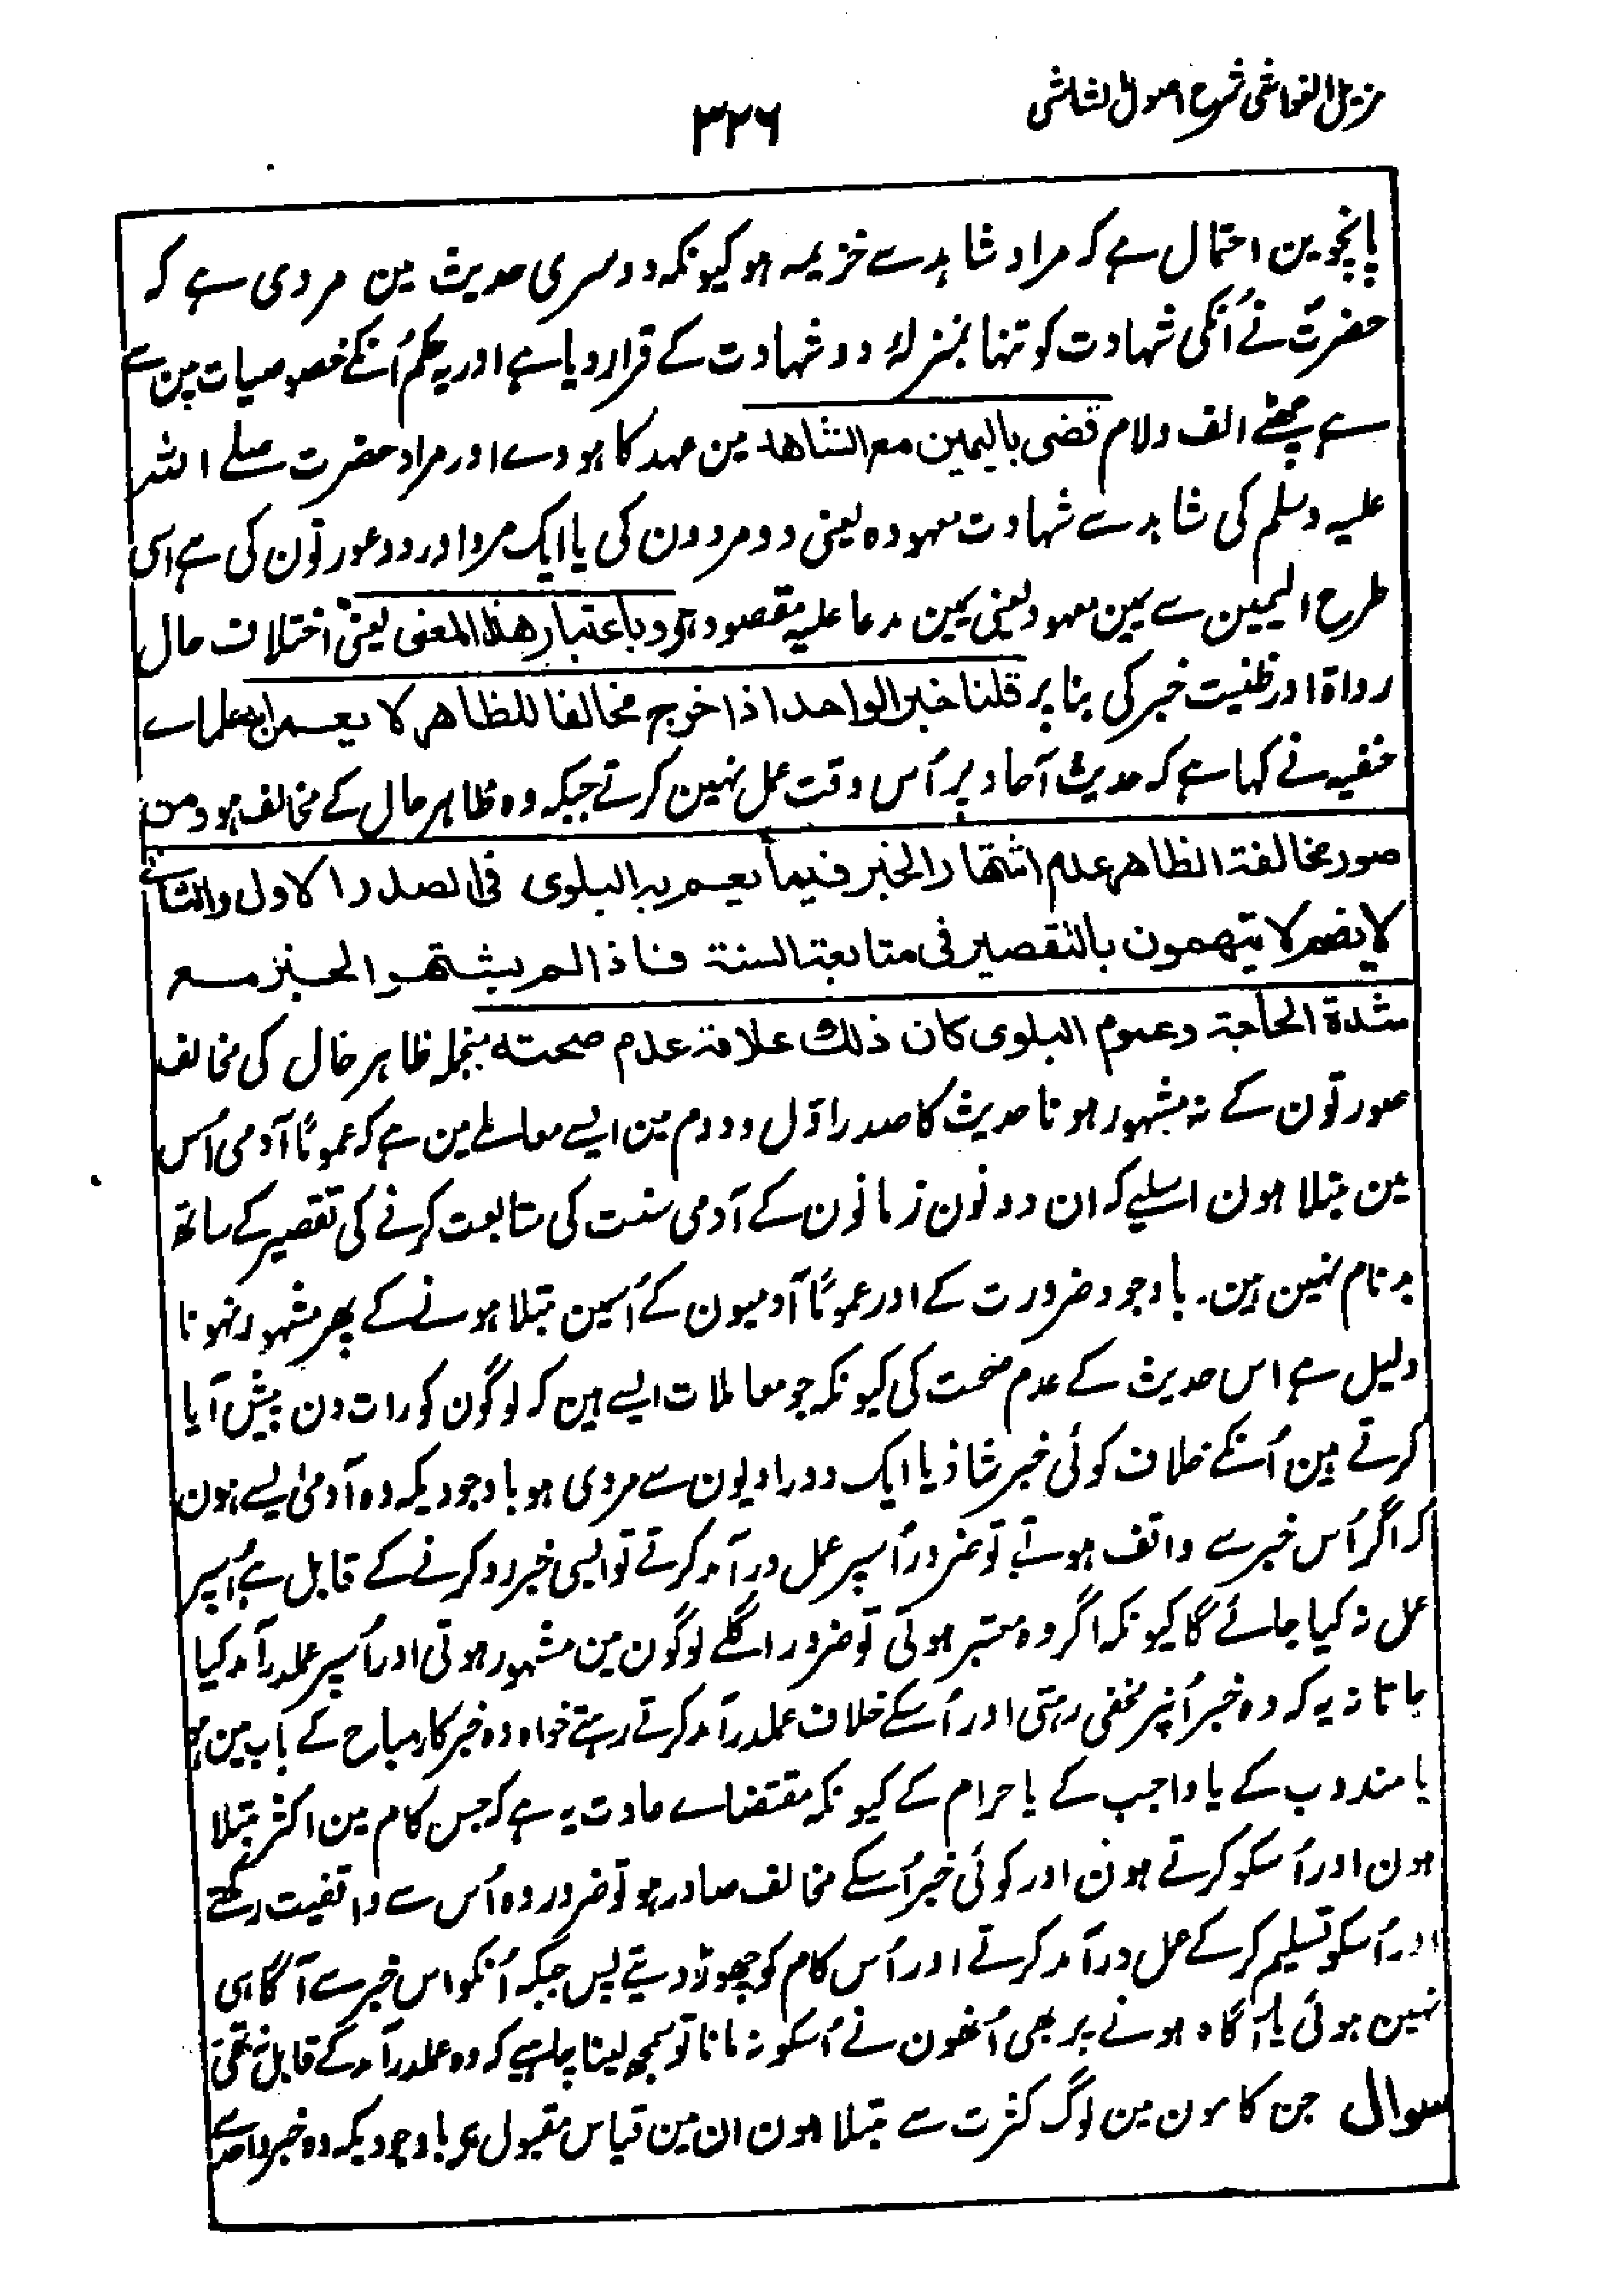 مزیل الغواشی شرح اصول الشاشی
۳۲۶
پانچوین احتمال ہے کہ مراد شاہد سے خزیمہ ہو کیونکہ دوسری حدیث مین مروی ہے کہ
حضرتؐ نے اُنکی شہادت کو تنہا بمنزلہ دو شہادت کے قرار دیا ہے اور یہ حکم اُنکے خصوصیات مین سے
ہے چھٹے الف ولام قضی بالیمین مع الشاهد مین عہد کا ہووے اور مراد حضرت صلے اللہ
علیہ وسلم کی شاہد سے شہادت معہودہ یعنی دو مردون کی یا ایک مرد اور دو عورتون کی ہے اسی
طرح الیمین سے یمین معہود یعنی یمین مدعا علیہ مقصود ہو وباعتبار هذا المعنی یعنی اختلاف حال
رواۃ اور ظنیت خبر کی بنا پر قلنا خبر الواحد اذا خرج مخالفا للظاهر لا یعمل به علماے
حنفیہ نے کہا ہے کہ حدیث آحاد پر اُس وقت عمل نہین کرتے جبکہ وہ ظاہر حال کے مخالف ہو ومن
صور مخالفة الظاهر عدم اشتهار الخبر فیما یعم به البلوی فی الصدر الاول والثانی
لانهم لا یتهمون بالتقصیر فی متابعة السنة فاذا لم یشتهر الخبر مع
شدة الحاجة وعموم البلوی کان ذلك علامة عدم صحته منجملہ ظاہر حال کی مخالف
صورتون کے نہ مشہور ہونا حدیث کا صدر اوّل ودوم مین ایسے معاملے مین ہے کہ عموماً آدمی اُس
مین مبتلا ہون اسلیے کہ ان دونون زمانون کے آدمی سنت کی متابعت کرنے کی تقصیر کے ساتھ
بدنام نہین ہین۔ باوجود ضرورت کے اور عموماً آدمیون کے اُسمین مبتلا ہونے کے پھر مشہور نہونا
دلیل ہے اس حدیث کے عدم صحت کی کیونکہ جو معاملات ایسے ہین کہ لوگون کو رات دن پیش آیا
کرتے ہین اُنکے خلاف کوئی خبر شاذ یا ایک دو راویون سے مروی ہو باوجودیکہ وہ آدمی ایسے ہون
کہ اگر اُس خبر سے واقف ہوتے تو ضرور اُسپر عمل درآمد کرتے تو ایسی خبر رد کرنے کے قابل ہے اُسپر
عمل نہ کیا جائے گا کیونکہ اگر وہ معتبر ہوتی تو ضرور اگلے لوگون مین مشہور ہوتی اور اُسپر عملدرآمد کیا
جاتا نہ یہ کہ وہ خبر اُنپر مخفی رہتی اور اُسکے خلاف عملدرآمد کرتے رہتے خواہ وہ خبر کار مباح کے باب مین ہو
یا مندوب کے یا واجب کے یا حرام کے کیونکہ مقتضاے عادت یہ ہے کہ جس کام مین اکثر مبتلا
ہون اور اُسکو کرتے ہون اور کوئی خبر اُسکے مخالف صادر ہو تو ضرور وہ اُس سے واقفیت رکھتے
اور اُسکو تسلیم کر کے عمل درآمد کرتے اور اُس کام کو چھوڑ دیتے پس جبکہ اُنکو اس خبر سے آگاہی
نہین ہوئی یا آگاہ ہونے پر بھی اُنھون نے اُسکو نہ مانا تو سمجھ لینا چاہیے کہ وہ عملدرآمد کے قابل نہ تھی
سوال جن کامون مین لوگ کثرت سے مبتلا ہون ان مین قیاس مقبول ہے باوجودیکہ وہ خبر واحد سے